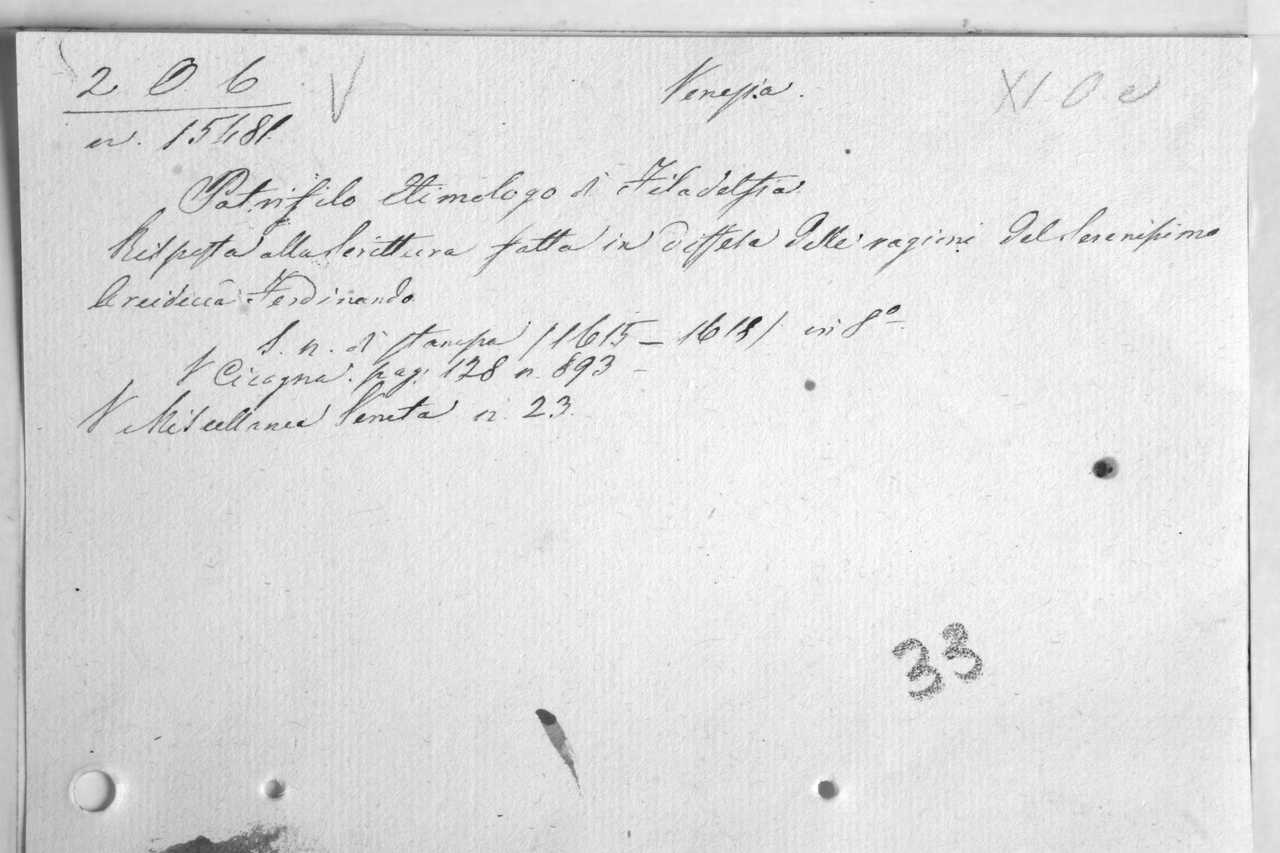 2. O. 6 V Venezia. XI. O e
n. 15481.
Patrifilo Etimologo di Filadelfia
Risposta alla Scrittura fatta in diffesa delle ragioni del Serenissimo
Arciducà Ferdinando
S. n. di stampa (1615 – 1618) in 8º.
V Cicogna. pag: 128 n. 893 –
V Miscellanea Veneta n. 23.
33